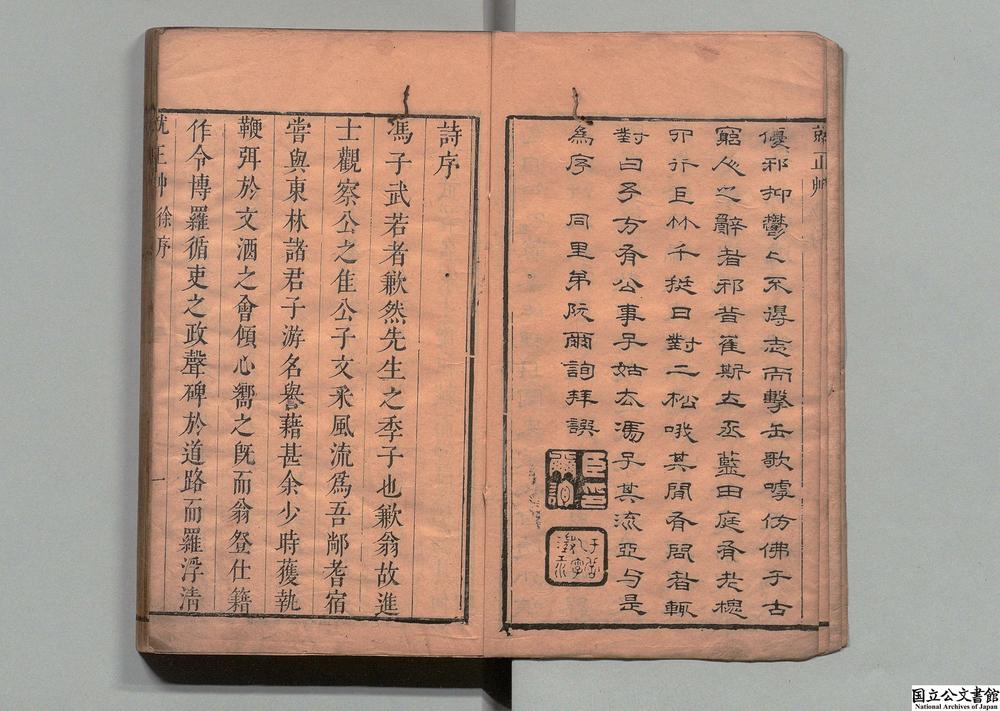 優邪抑鬱鬱不得志而擊缶歌嘑仿佛于古
窮人之辭者邪昔崔斯立丞藍田庭有老槐
四行巨竹千挺日對二松哦其間有問者輒
對曰予方有公事子姑去馮子其流亞与是
為序 同里弟阮爾詢拜譔
臣印爾詢
就正艸
詩序
馮子武若者歉然先生之季子也歉翁故進
士觀察公之隹公子文采風流為吾鄗耆宿
嘗與東林諸君子游名譽藉甚余少時獲執
鞭弭於文酒之會傾心嚮之既而翁登仕籍
作令博羅循吏之政聲碑於道路而羅浮清
就正艸 徐序 一
国立公文書館
National Archives of Japan